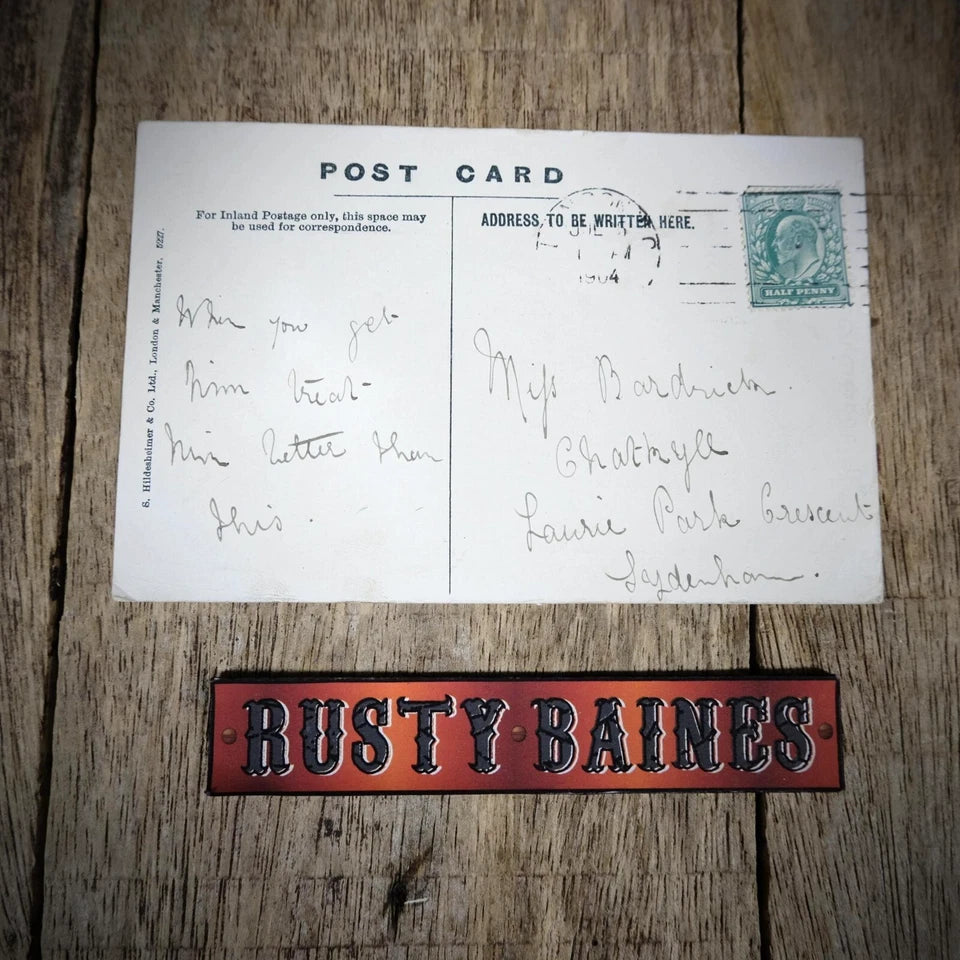 POST CARD
For Inland Postage only, this space may
be used for correspondence.
ADDRESS TO BE WRITTEN HERE.
1904
HALF PENNY
S. Hildesheimer & Co. Ltd., London & Manchester. 5227.
When you get
him treat
him better than
this.
Miss
Laurie Park Crescent
Sydenham.
RUSTY BAINES